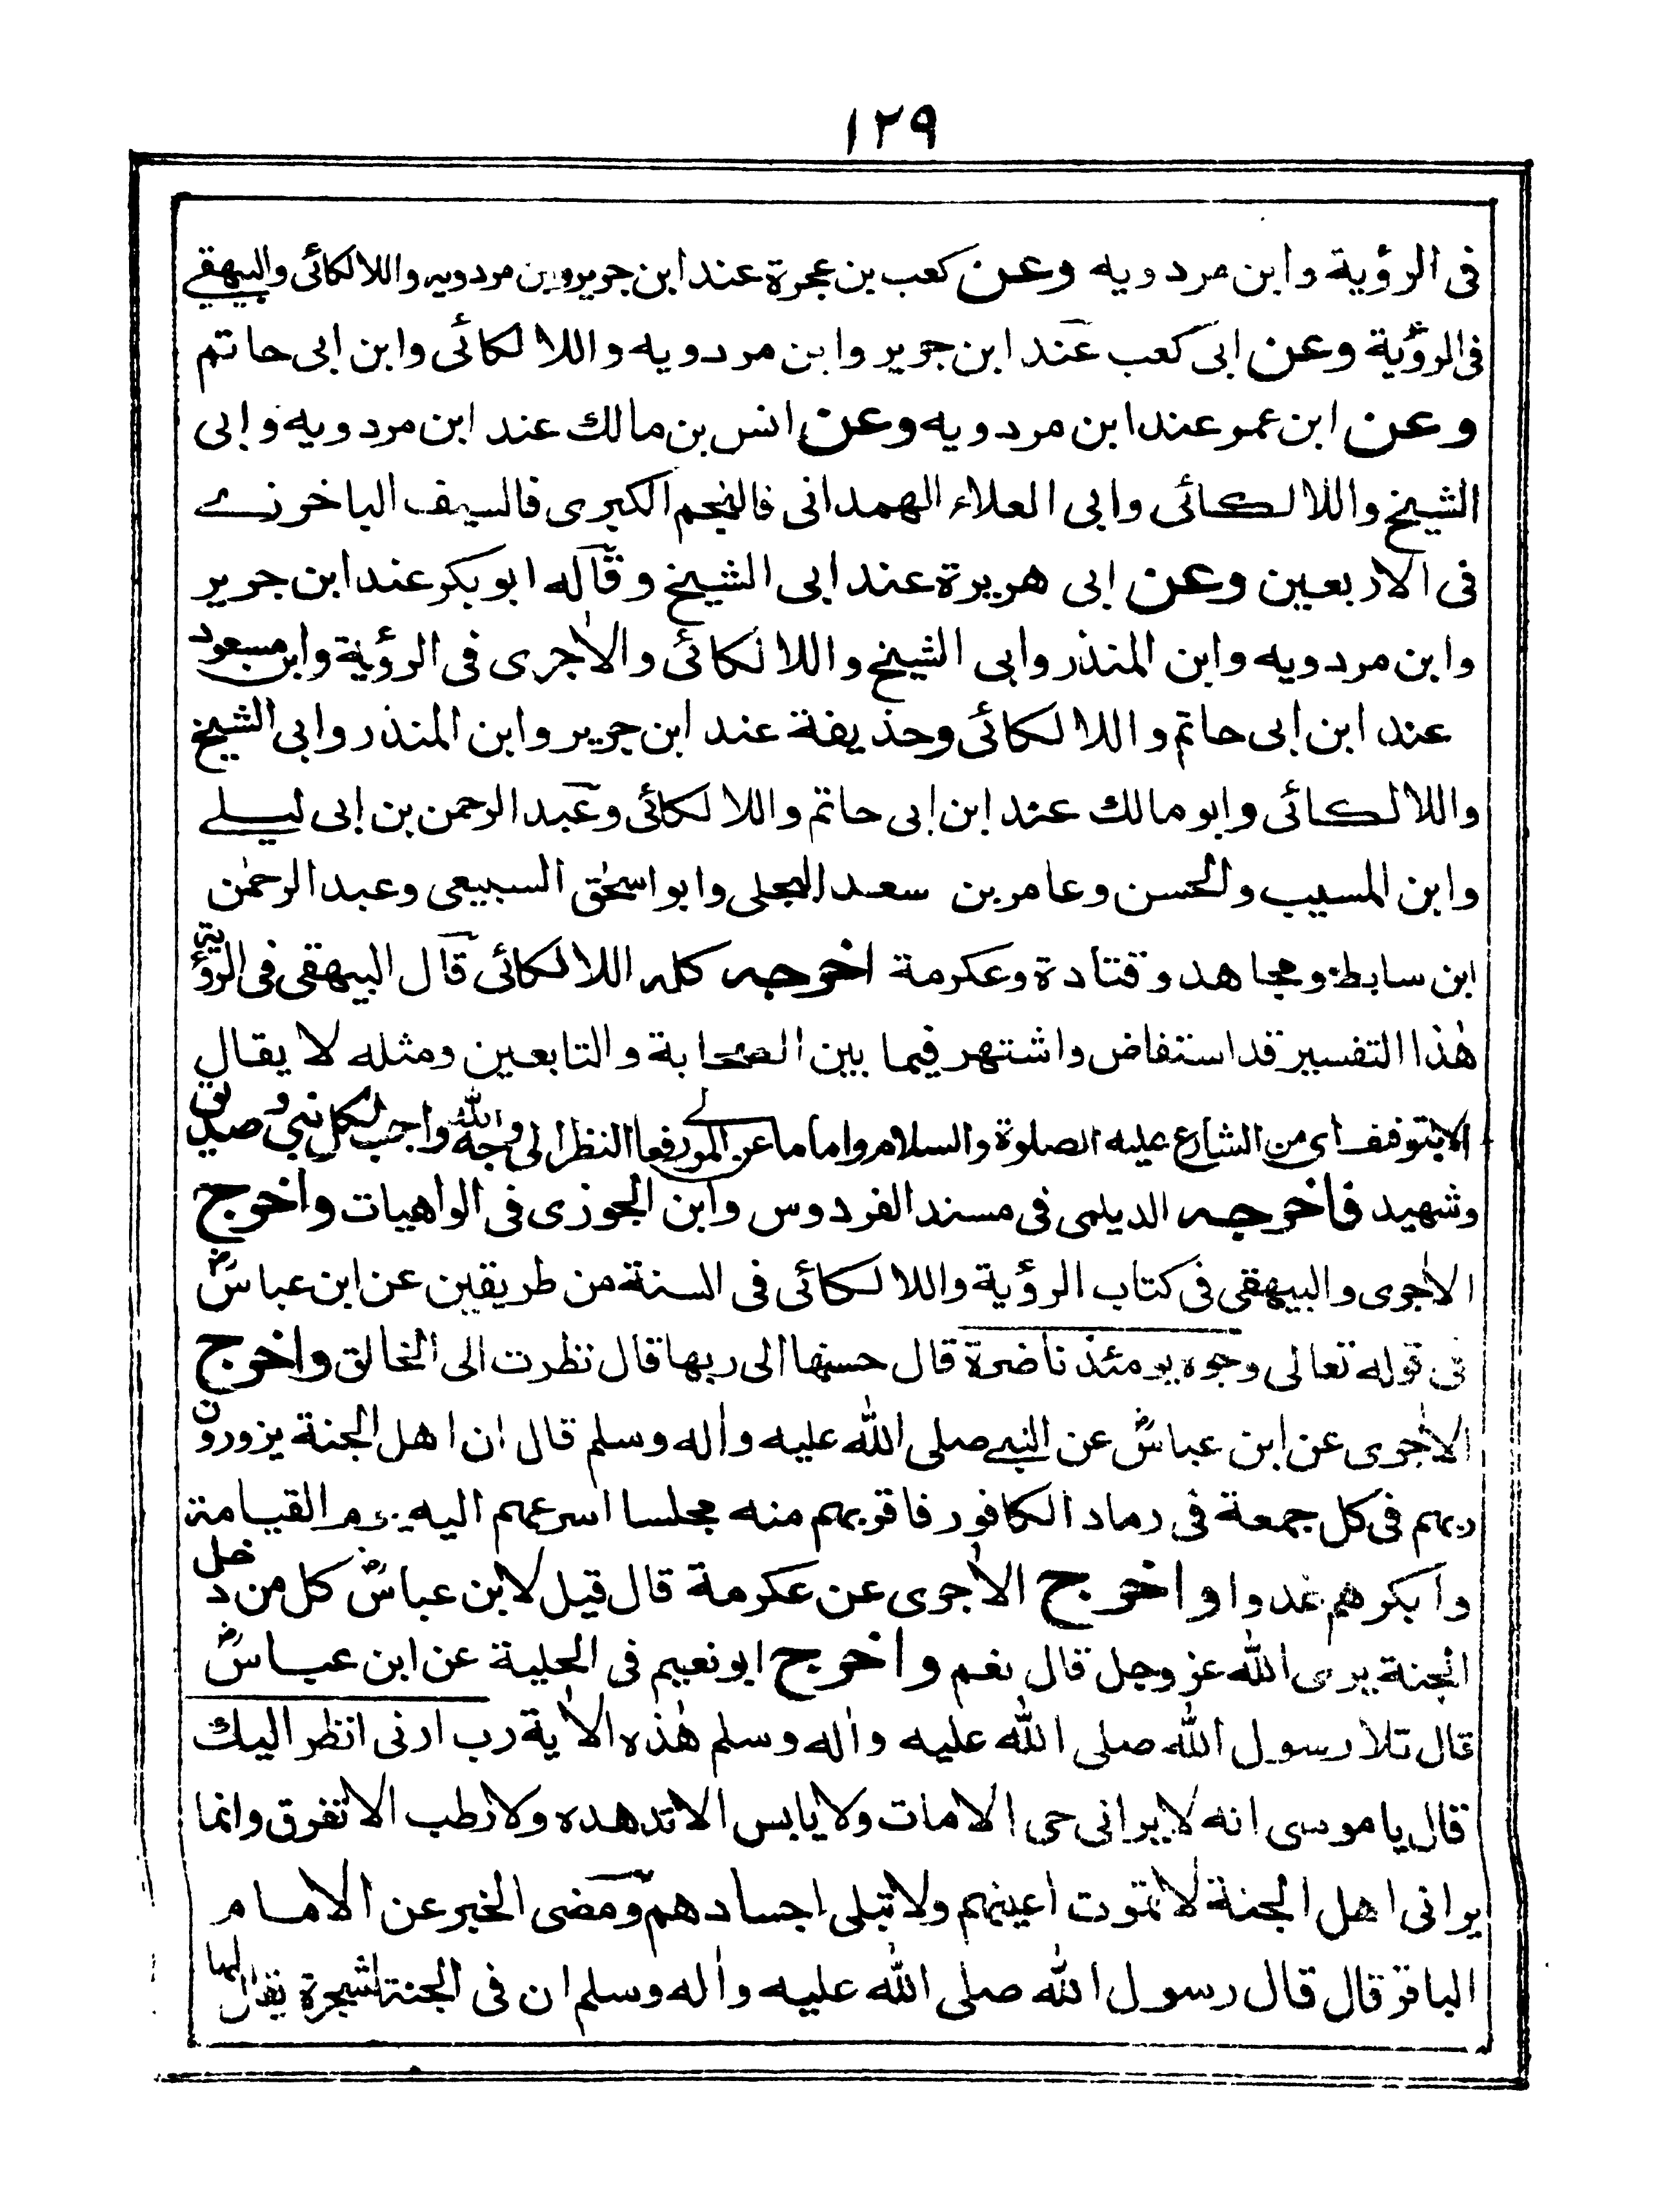 ١٢٩
فى الرؤية وابن مردويه وعن كعب بن عجرة عند ابن جرير وابن مردويه واللالكائى والبيهقى
فى الرؤية وعن ابى كعب عند ابن جرير وابن مردويه واللالكائى وابن ابى حاتم
وعن ابن عمر عند ابن مردويه وعن انس بن مالك عند ابن مردويه وابى
الشيخ واللالكائى وابى العلاء الهمدانى فالنجم الكبرى فالسيف الباخرزى
فى الاربعين وعن ابى هريرة عند ابى الشيخ وقاله ابو بكر عند ابن جرير
وابن مردويه وابن المنذر وابى الشيخ واللالكائى والاٰجرى فى الرؤية وابن مسعود
عند ابن ابى حاتم واللالكائى وحذيفة عند ابن جرير وابن المنذر وابى الشيخ
واللالكائى وابو مالك عند ابن ابى حاتم واللالكائى وعبد الرحمن بن ابى ليلى
وابن المسيب والحسن وعامر بن سعد البجلى وابو اسحٰق السبيعى وعبد الرحمٰن
ابن سابط ومجاهد وقتادة وعكرمة اخرجه كله اللالكائى قال البيهقى فى الرؤية
هٰذا التفسير قد استفاض واشتهر فيما بين الصحابة والتابعين ومثله لا يقال
الا بتوقيف اى من الشارع عليه الصلوة والسلام واما ما عن رفعا النظر الى وجه الله واجب لكل نبى وصديق
وشهيد فاخرجه الديلمى فى مسند الفردوس وابن الجوزى فى الواهيات واخرج
الاٰجرى والبيهقى فى كتاب الرؤية واللالكائى فى السنة من طريقين عن ابن عباسؓ
فى قوله تعالى وجوه يومئذ ناضرة قال حسنها الى ربها قال نظرت الى الخالق واخرج
الاٰجرى عن ابن عباسؓ عن النبى صلى الله عليه واٰله وسلم قال ان اهل الجنة يزورون
ربهم فى كل جمعة فى رماد الكافور فاقربهم منه مجلسا اسرعهم اليه يوم القيامة
وابكرهم غدوا واخرج الاٰجرى عن عكرمة قال قيل لابن عباسؓ كل من دخل
الجنة يرى الله عز وجل قال نعم واخرج ابو نعيم فى الحلية عن ابن عباسؓ
قال تلا رسول الله صلى الله عليه واٰله وسلم هٰذه الاٰية رب ارنى انظر اليك
قال يا موسى انه لا يرانى حى الا مات ولا يابس الا تدهده ولا رطب الا تفرق وانما
يرانى اهل الجنة لا تموت اعينهم ولا تبلى اجسادهم ومضى الخبر عن الامام
الباقر قال قال رسول الله صلى الله عليه واٰله وسلم ان فى الجنة لشجرة يقال لها